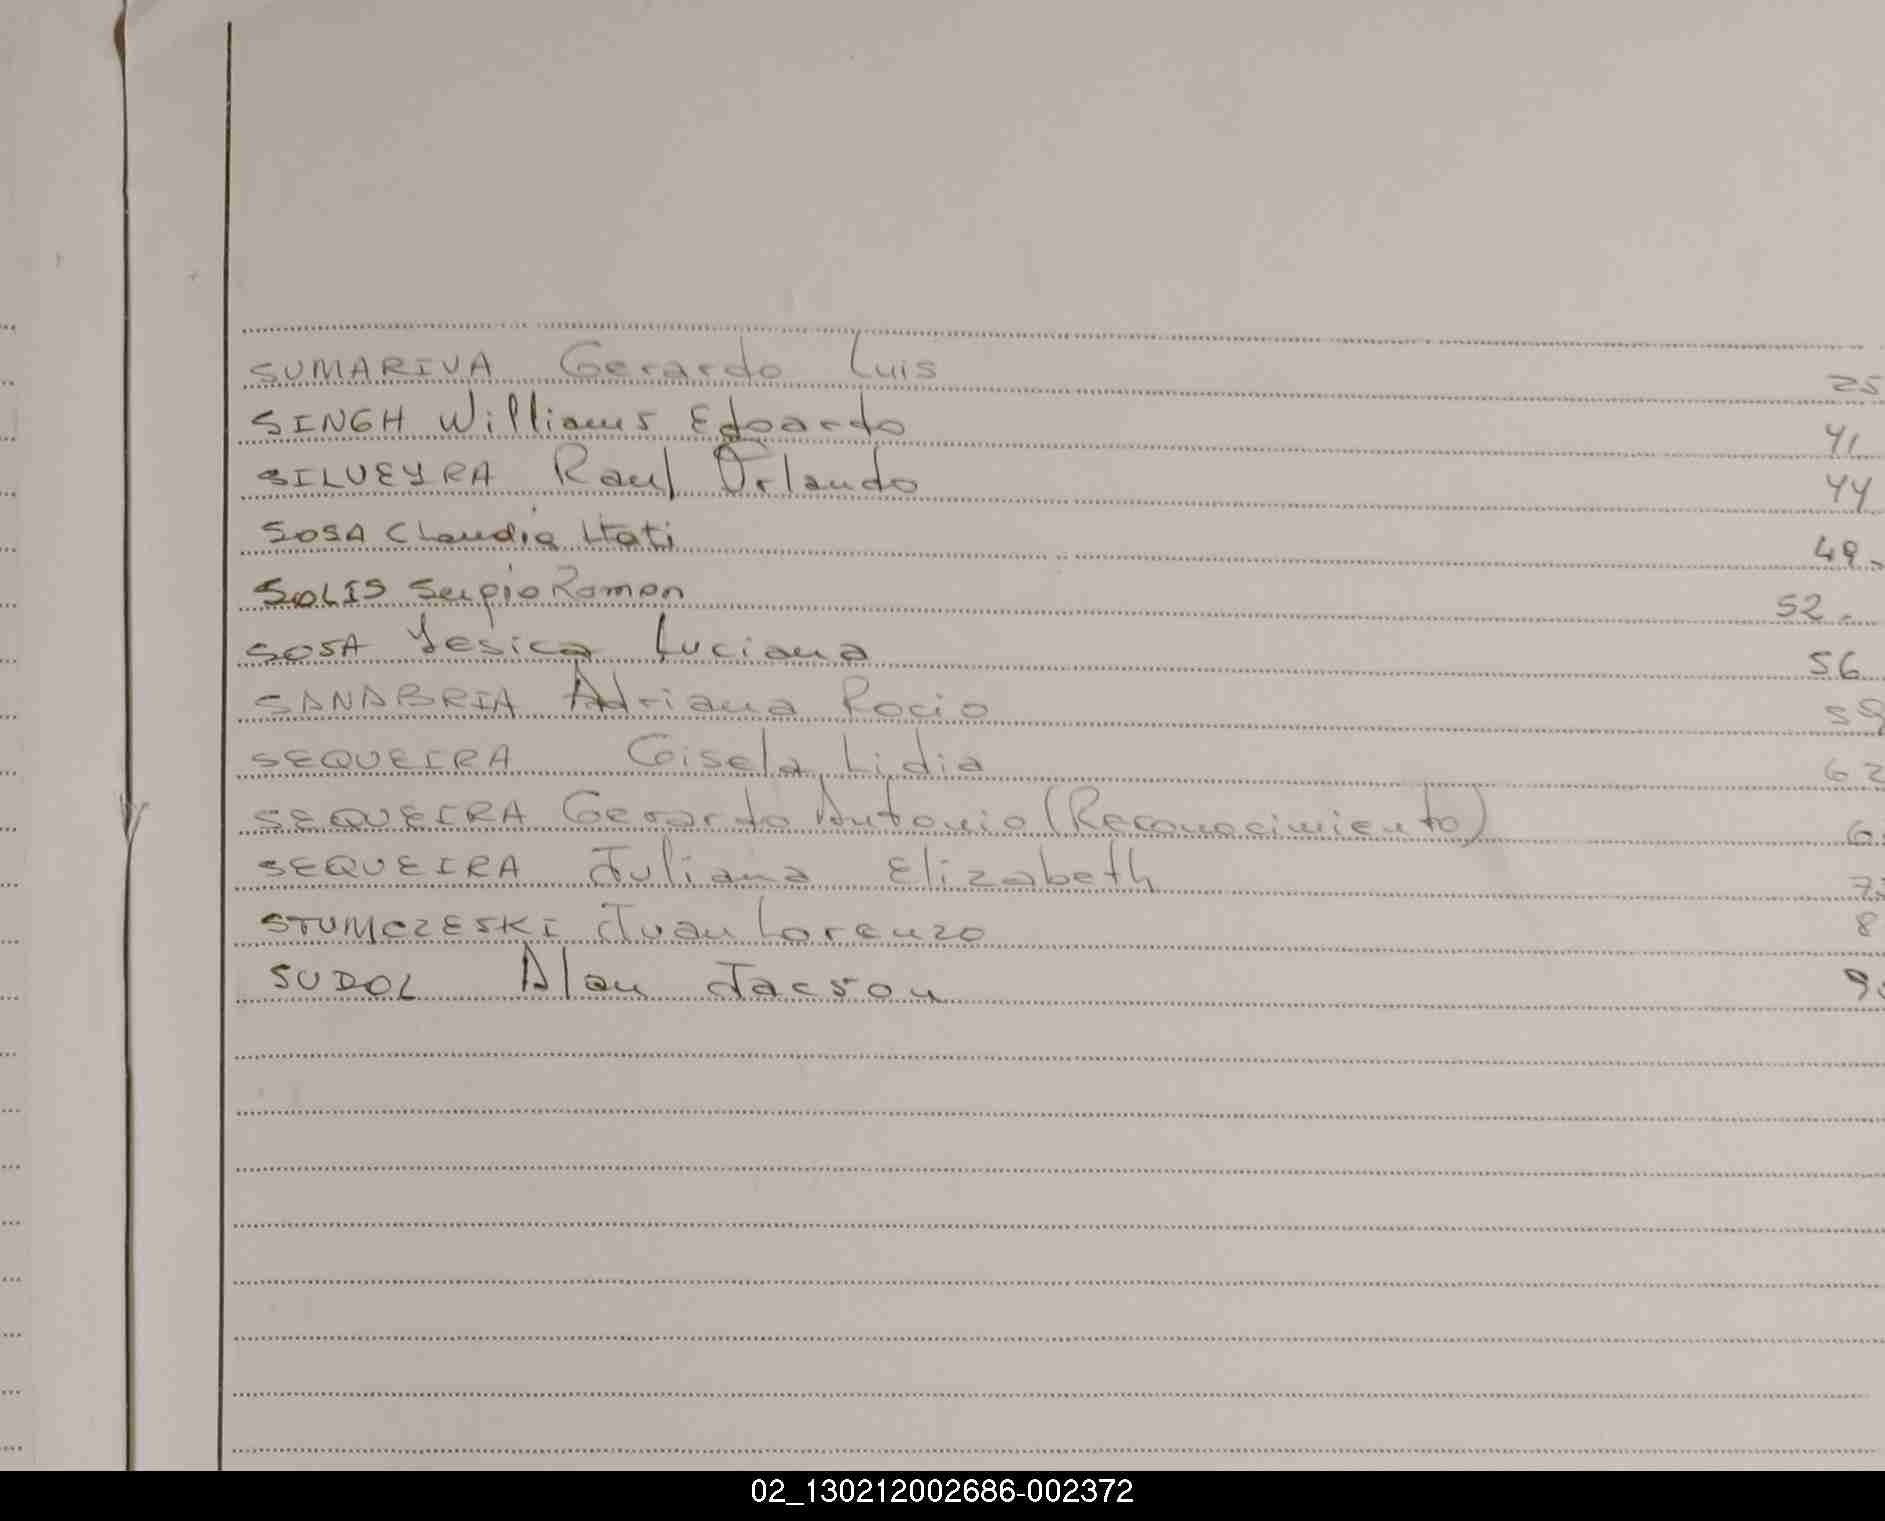 SUMARIVA Gerardo Luis 25
SINGH Williams Edoardo 41
SILVEYRA Raul Orlando 44
SOSA Claudia Itati 49.
SOLIS Sergio Ramon 52.
SOSA Yesica Luciana 56
SANABRIA Adriana Rocio 59
SEQUEIRA Gisela Lidia 62
SEQUEIRA Gerardo Antonio (Reconocimiento)
SEQUEIRA Juliana Elizabeth
STUMCZESKI Juan Lorenzo
SUDOL Alan Jacson
02_130212002686-002372